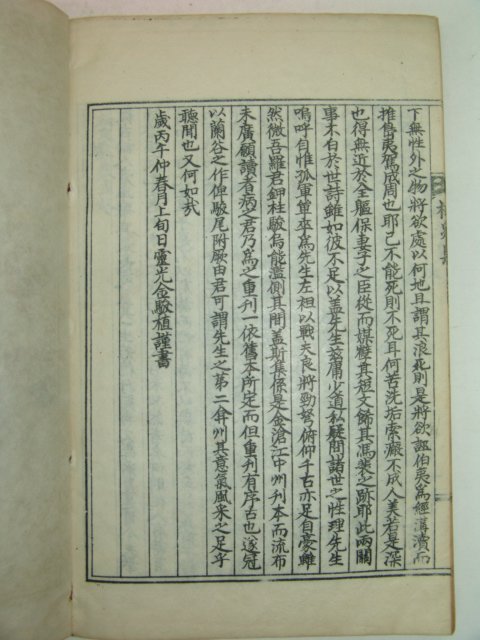 下無性外之物將欲處以何地且謂其浪死則是將欲誣伯夷爲經溝瀆而
推雋夷駕成周也耶己不能死則不死耳何苦洗垢索瘢不成人美若是深
也得無近於全軀保妻子之臣從而媒糱其短文飾其馮裴之跡耶此兩關
事不白於世詩雖如彼不足以盖先生玆庸少道私疑間諸世之性理先生
嗚呼自惟孤軍單卒爲先生左袒以戰夫良將勁弩俯仰千古亦足自豪雖
然微吾羅君鉀柱駿烏能濫側其間盖斯集係是金滄江中州刊本而流布
未廣顧讀者病之君乃爲之重刊一依舊本所定而但重刊有序古也遂冠
以蘭谷之作俾駿尾附厥由君可謂先生之第二弇州其意氣風采之足乎
聽聞也又何如哉
歲丙午仲春月上旬日靈光金駿植謹書